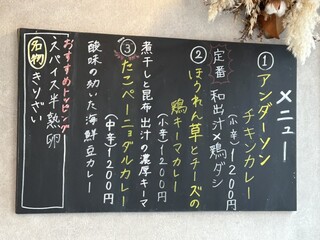 メニュー
① アンダーソン
チキンカレー
(小辛) 1200円
定番 和出汁×鶏ダシ
② ほうれん草とチーズの
鶏キーマカレー
(小辛) 1200円
煮干しと昆布出汁の濃厚キーマ
③ たこペーニョダルカレー
(中辛) 1200円
酸味の効いた海鮮豆カレー
おすすめトッピング
スパイス半熟卵
名物 きりさい